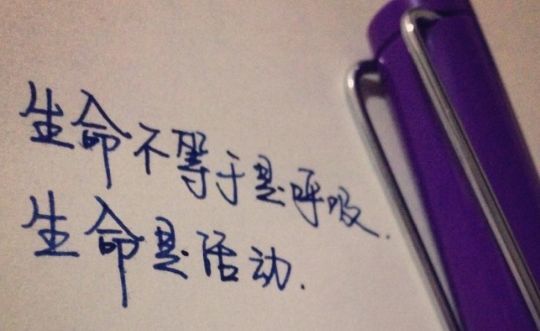 生命不等于是呼吸.
生命是活动.